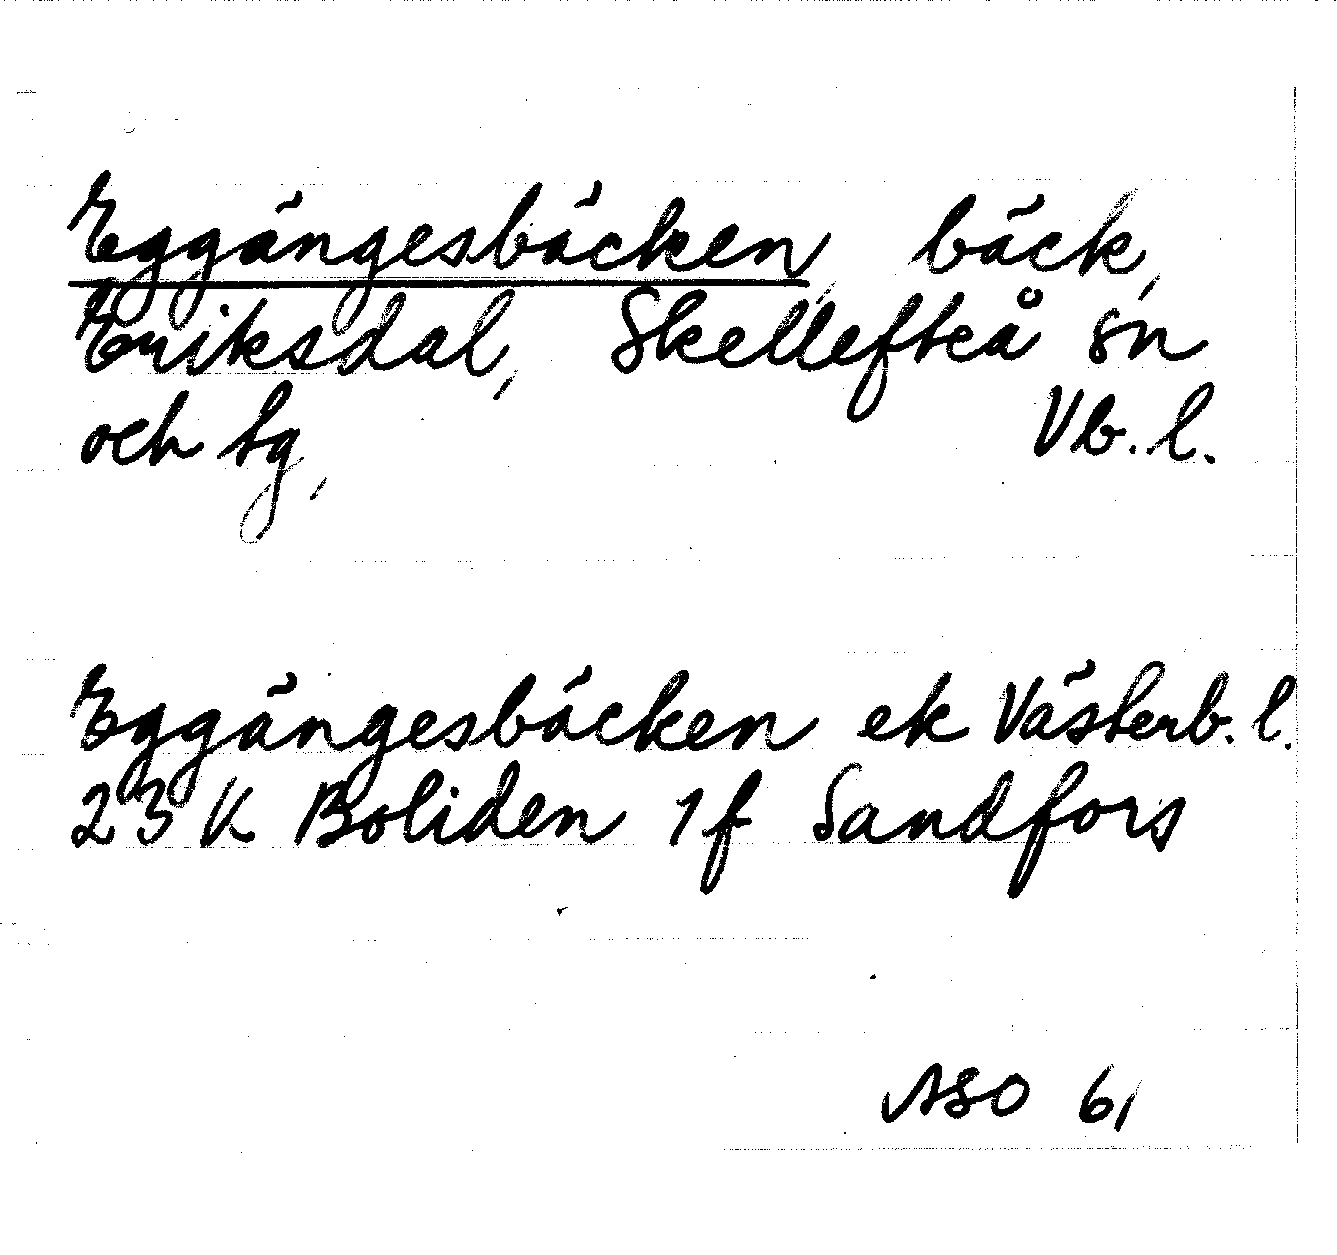 Eggängesbäcken, bäck,
Eriksdal, Skellefteå sn
och tg, Vb. l.
Eggängesbäcken ek Västerb. l.
23 K Boliden 1f Sandfors
ASO 61